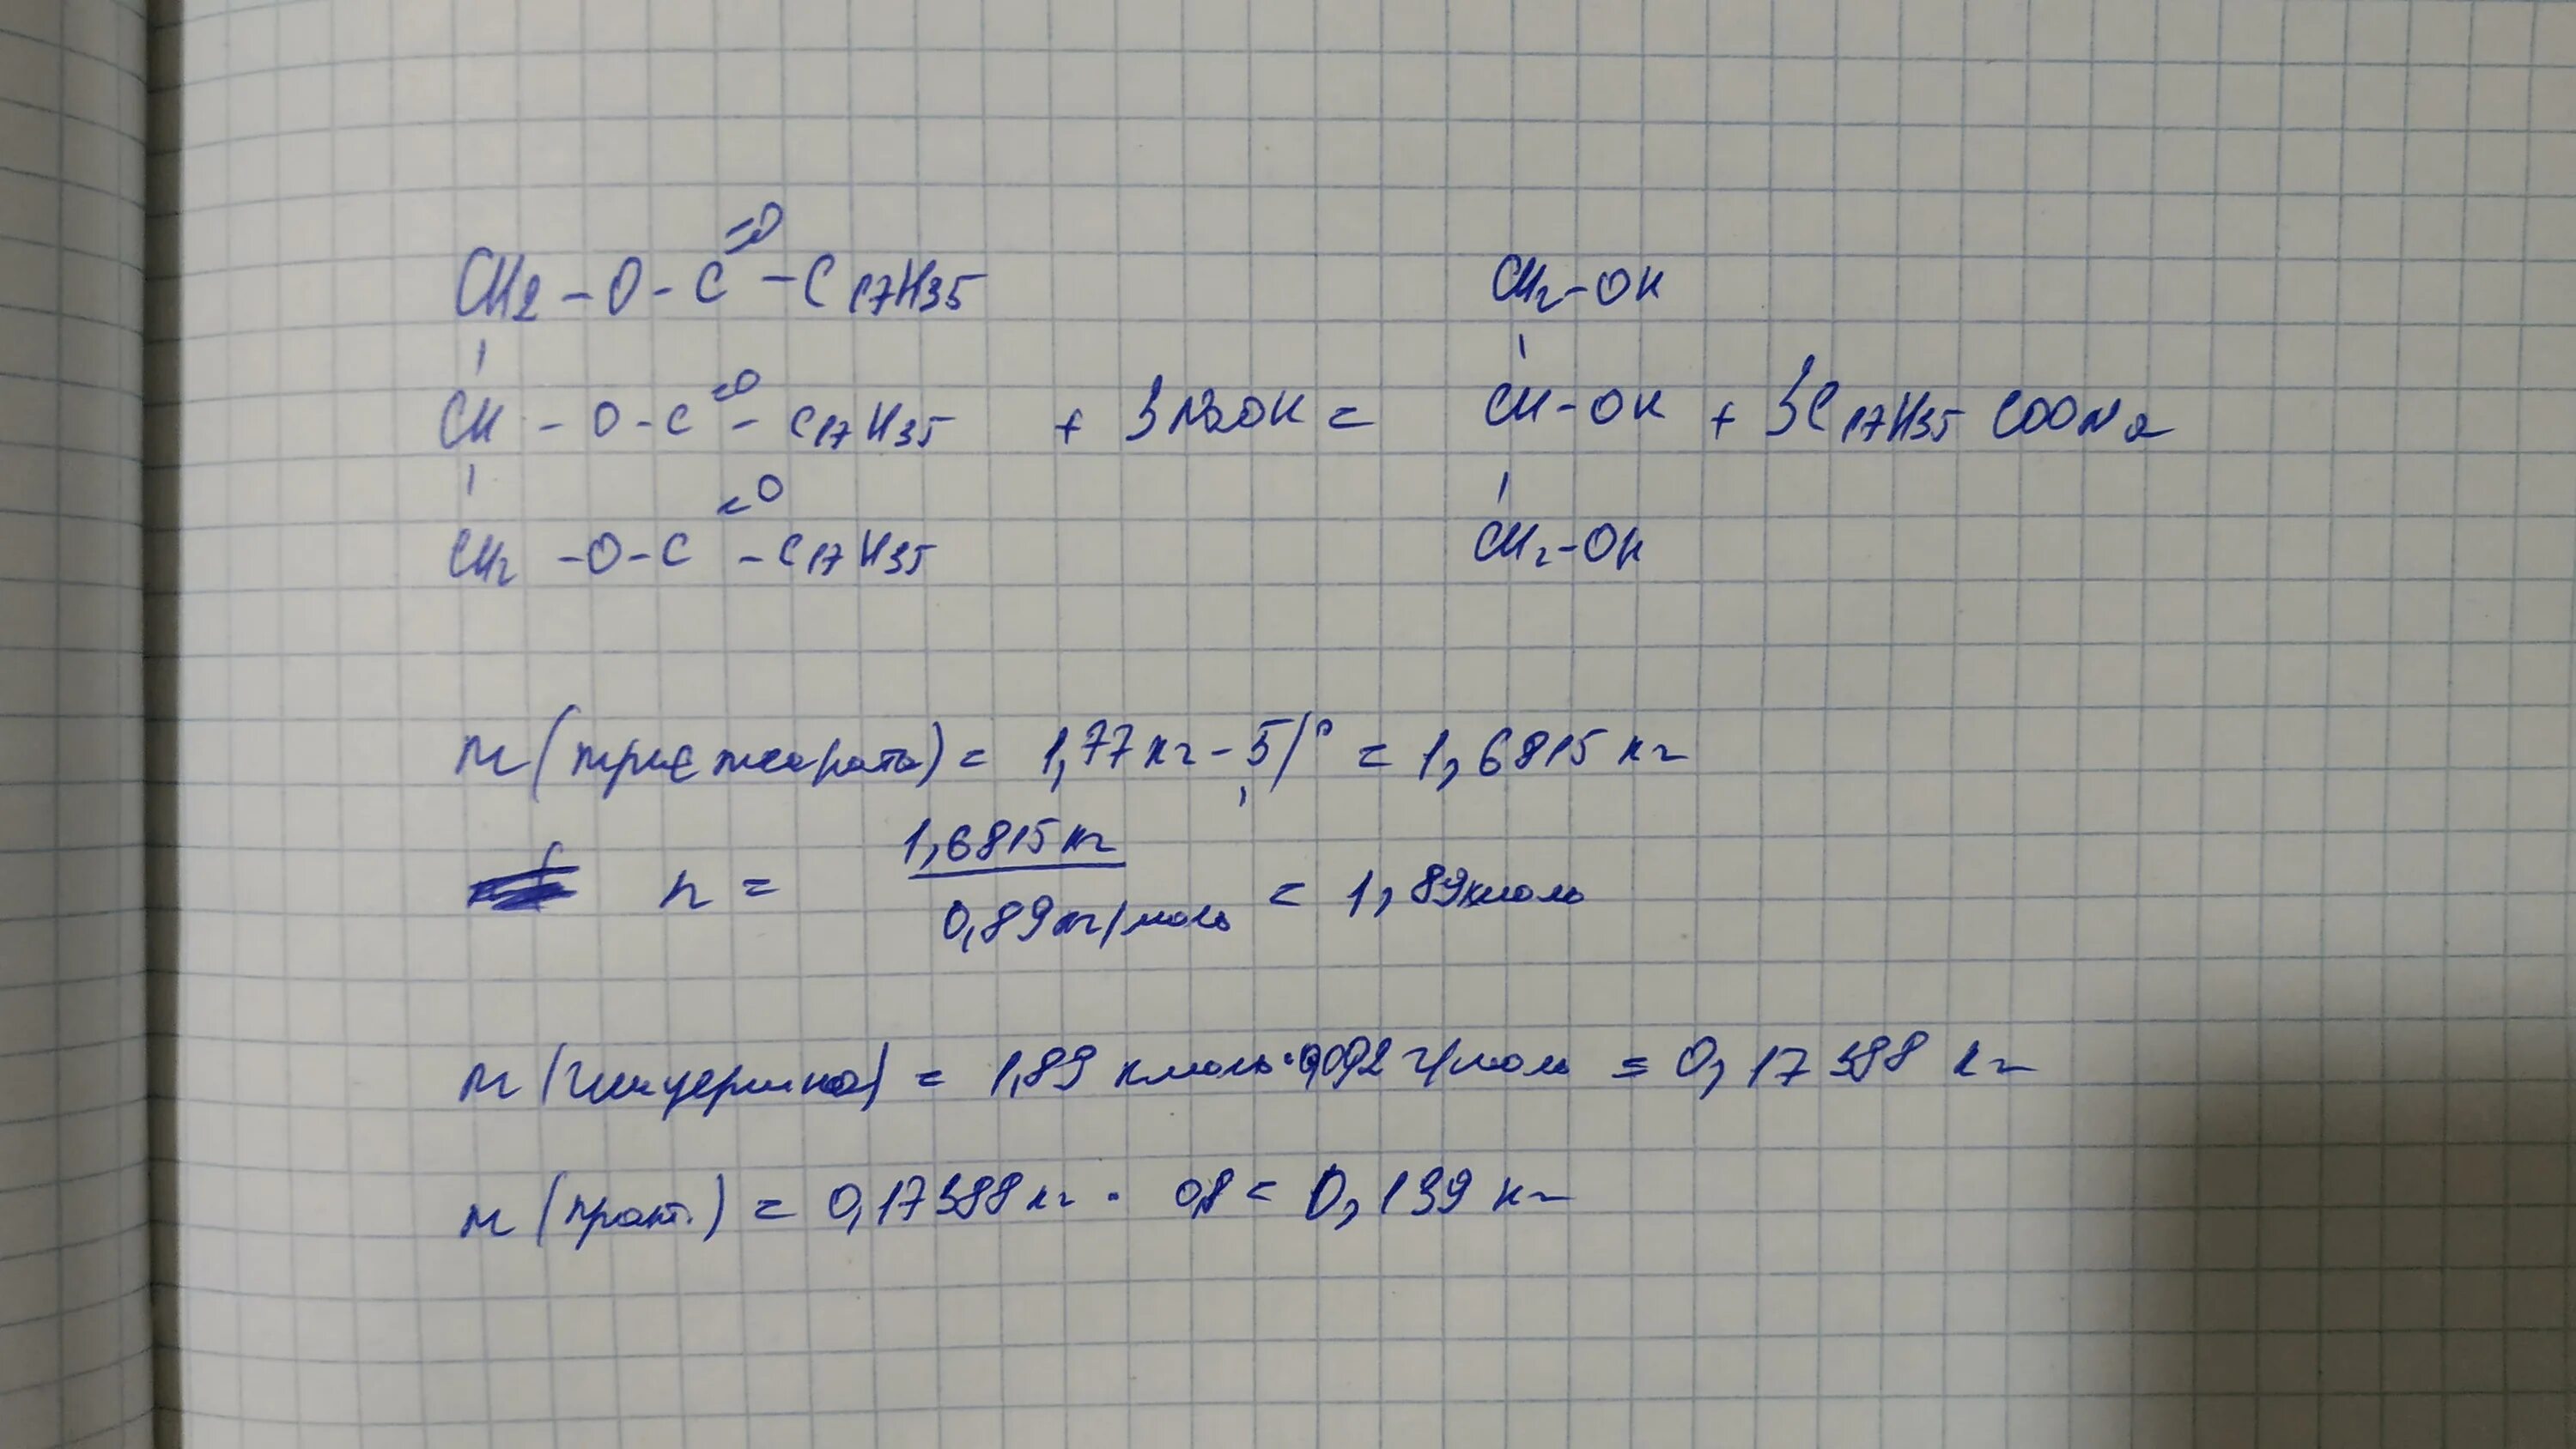 CH2 - O - C =O - C17H35
CH - O - C =O - C17H35 + 3NaOH =
CH2 - O - C =O - C17H35
CH2 - OH
CH - OH + 3C17H35COONa
CH2 - OH
m (тристеарата) = 1,77 кг - 5% = 1,6815 кг
n = 1,6815 кг / 0,89 кг/моль = 1,89 кмоль
m (глицерина) = 1,89 кмоль · 0,092 г/моль = 0,17388 кг
m (практ.) = 0,17388 кг · 0,8 = 0,139 кг